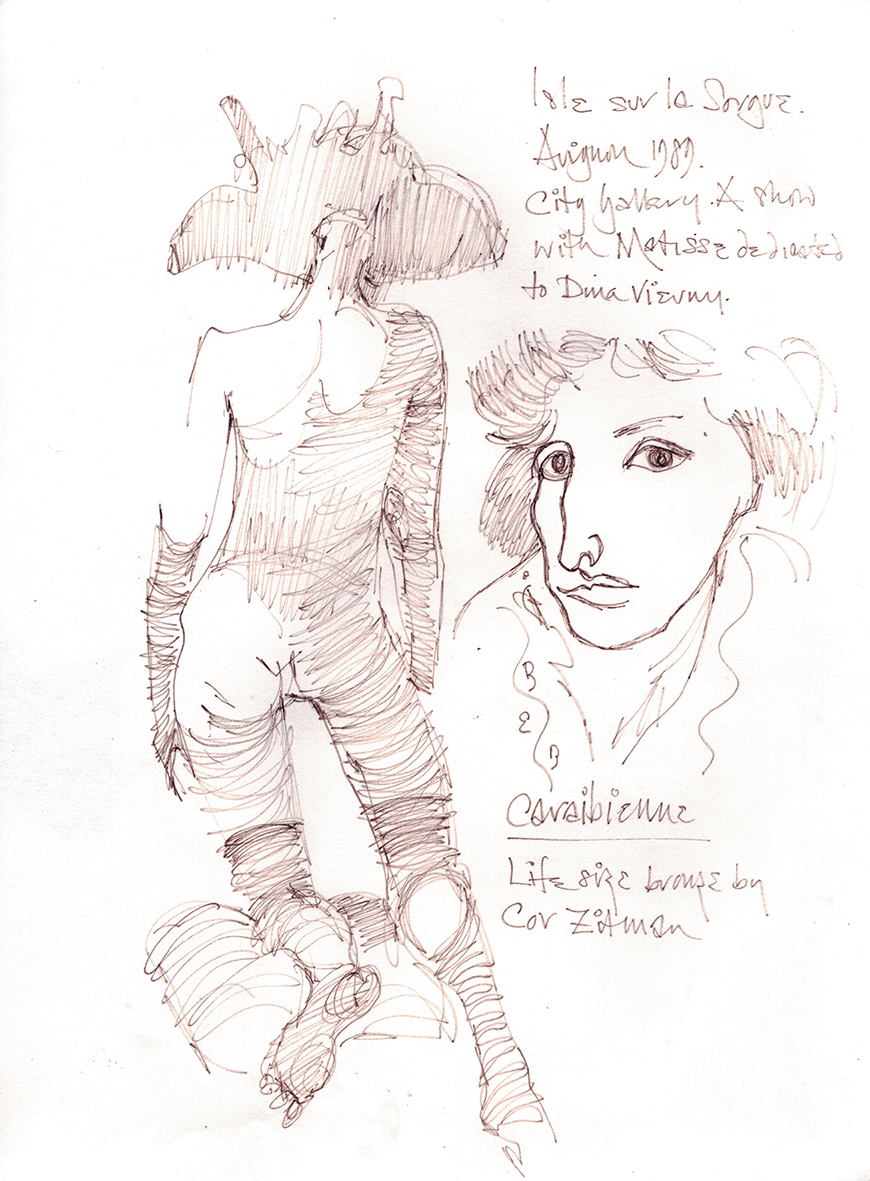 Isle sur la Sorgue.
Avignon 1989.
City Gallery. A show
with Matisse dedicated
to Dina Vierny.
B
E
B
Caraibienne
Life size bronze by
Cor Zitman